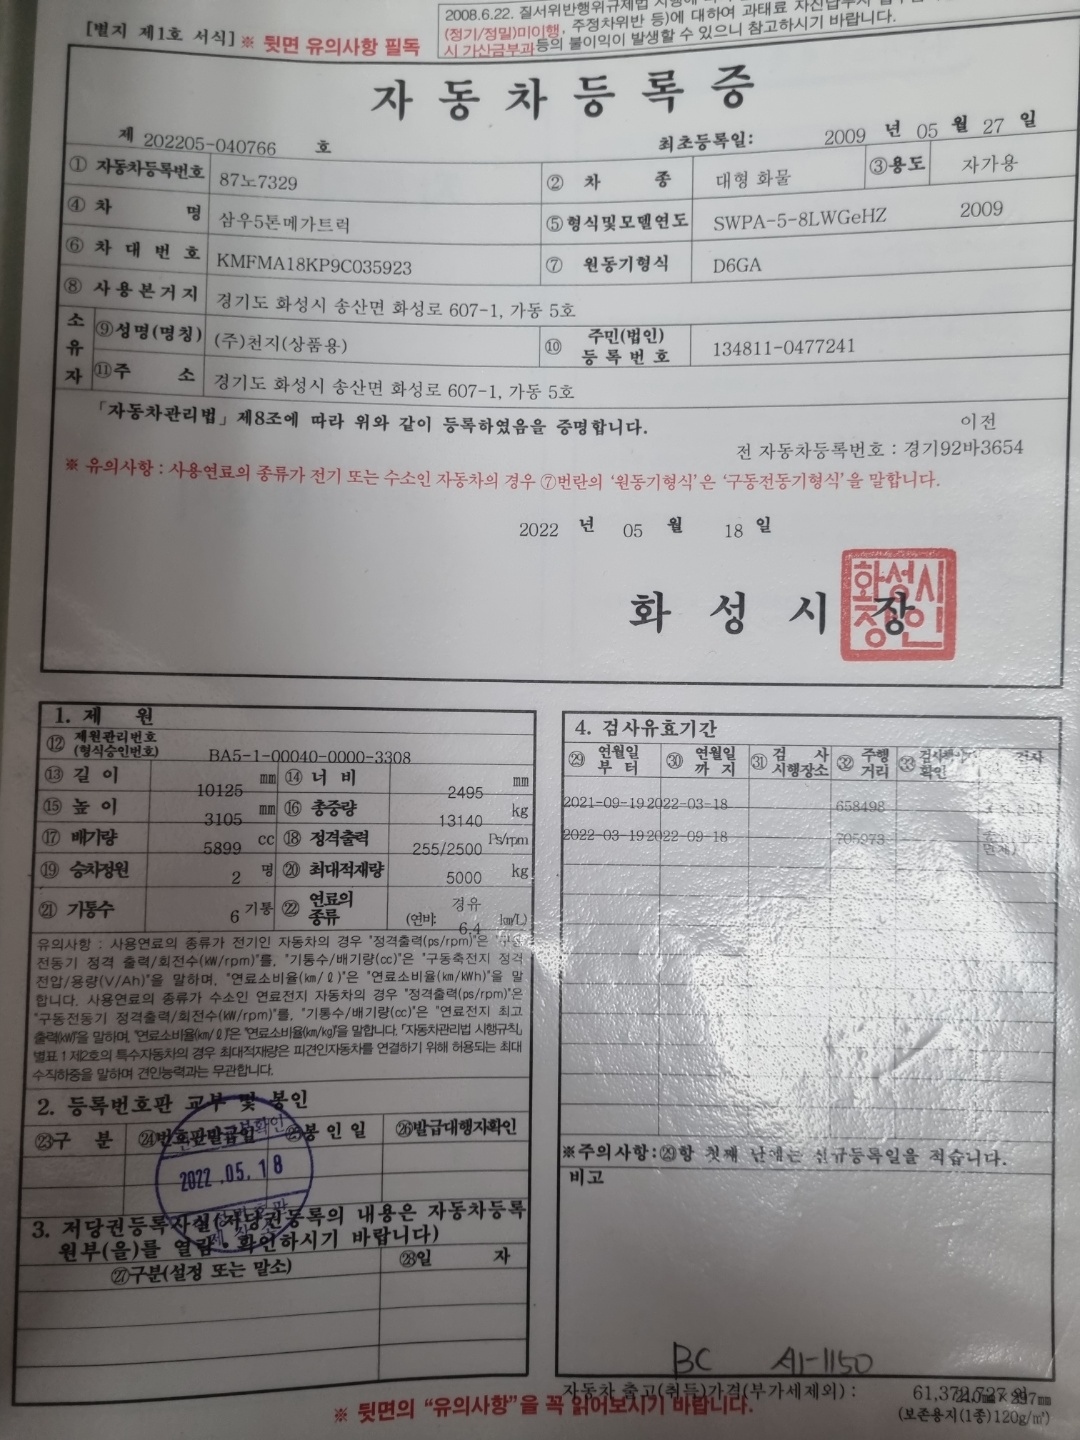 2008.6.22. 질서위반행위규제법
(정기/정밀)미이행, 주정차위반 등)에 대하여 과태료 자진납부자
시 가산금부과등의 불이익이 발생할 수 있으니 참고하시기 바랍니다.
[별지 제1호 서식] ※ 뒷면 유의사항 필독
자동차등록증
제 202205-040766 호
최초등록일: 2009 년 05 월 27 일
① 자동차등록번호 87노7329 ② 차 종 대형 화물 ③용도 자가용
④ 차 명 삼우5톤메가트럭 ⑤형식및모델연도 SWPA-5-8LWGeHZ 2009
⑥ 차대번호 KMFMA18KP9C035923 ⑦ 원동기형식 D6GA
⑧ 사용본거지 경기도 화성시 송산면 화성로 607-1, 가동 5호
소유자 ⑨성명(명칭) (주)천지(상품용) ⑩ 주민(법인)등록번호 134811-0477241
⑪주 소 경기도 화성시 송산면 화성로 607-1, 가동 5호
「자동차관리법」 제8조에 따라 위와 같이 등록하였음을 증명합니다.
이전
전 자동차등록번호 : 경기92바3654
※ 유의사항 : 사용연료의 종류가 전기 또는 수소인 자동차의 경우 ⑦번란의 '원동기형식'은 '구동전동기형식'을 말합니다.
2022 년 05 월 18 일
화성시장
화성시장인
1. 제 원
⑫ 제원관리번호(형식승인번호) BA5-1-00040-0000-3308
⑬ 길이 10125 mm ⑭ 너비 2495 mm
⑮ 높이 3105 mm ⑯ 총중량 13140 kg
⑰ 배기량 5899 cc ⑱ 정격출력 255/2500 Ps/rpm
⑲ 승차정원 2 명 ⑳ 최대적재량 5000 kg
㉑ 기통수 6 기통 ㉒ 연료의 종류 경유 (연비: 6.4 km/L)
유의사항 : 사용연료의 종류가 전기인 자동차의 경우 "정격출력(ps/rpm)"은 "구동
전동기 정격 출력/회전수(kW/rpm)"를, "기통수/배기량(cc)"은 "구동축전지 정격
전압/용량(V/Ah)"을 말하며, "연료소비율(km/ℓ)"은 "연료소비율(km/kWh)"을 말
합니다. 사용연료의 종류가 수소인 연료전지 자동차의 경우 "정격출력(ps/rpm)"은
"구동전동기 정격출력/회전수(kW/rpm)"를, "기통수/배기량(cc)"은 "연료전지 최고
출력(kW)"을 말하며, "연료소비율(km/ℓ)"은 "연료소비율(km/kg)"을 말합니다. 「자동차관리법 시행규칙」
별표 1 제2호의 특수자동차의 경우 최대적재량은 피견인자동차를 연결하기 위해 허용되는 최대
수직하중을 말하며 견인능력과는 무관합니다.
2. 등록번호판 교부 및 봉인
㉓구 분 ㉔번호판발급일 ㉕봉인일 ㉖발급대행자확인
2022.05.18
3. 저당권등록사실(저당권등록의 내용은 자동차등록
원부(을)를 열람·확인하시기 바랍니다)
㉗구분(설정 또는 말소) ㉘일 자
4. 검사유효기간
㉙ 연월일부터 ㉚ 연월일까지 ㉛ 검사시행장소 ㉜ 주행거리 ㉝
확인
2021-09-19 2022-03-18 658498
2022-03-19 2022-09-18 705973
※주의사항:㉙항 첫째 난에는 신규등록일을 적습니다.
비고
BC A1-1150
자동차 출고(취득)가격(부가세제외) : 61,372,727 원
※ 뒷면의 "유의사항"을 꼭 읽어보시기 바랍니다.
(보존용지(1종)120g/㎡)